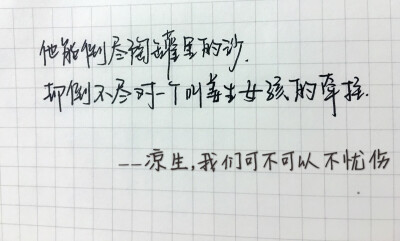 他能倒尽陶罐里的沙.
却倒不尽对一个叫姜生女孩的牵挂.
——凉生,我们可不可以不忧伤